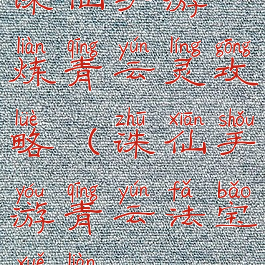 诛仙手游
liàn qīng yún líng gōng
炼青云灵攻
lüè（zhū xiān shǒu
略（诛仙手
yóu qīng yún fǎ bǎo
游青云法宝
xuě liàn